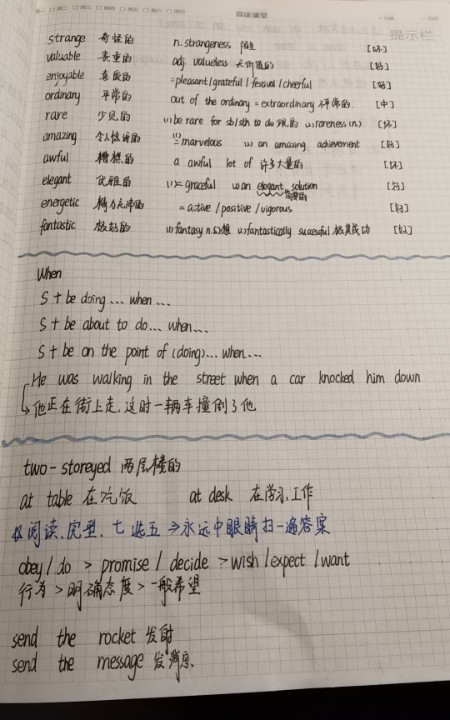 提示栏
strange 奇怪的 n. strangeness 陌生 [坏]
valuable 贵重的 adj. valueless 无价值的 [好]
enjoyable 喜欢的 =pleasant/grateful/festival/cheerful [好]
ordinary 平常的 out of the ordinary = extraordinary 不平常的 [中]
rare 少见的 (1) be rare for sb/sth to do 罕见的 (2) rareness (n.) [坏]
amazing 令人惊讶的 (1) = marvelous (2) an amazing achievement [好]
awful 糟糕的 a awful lot of 许多大量的 [坏]
elegant 优雅的 (1) = graceful (2) an elegant solution [好]
energetic 精力充沛的 = active / positive / vigorous [好]
fantastic 极好的 (1) fantasy n. 幻想 (2) fantastically successful 极其成功 [好]
When
S + be doing ... when ...
S + be about to do ... when ...
S + be on the point of (doing) ... when ...
He was walking in the street when a car knocked him down
他正在街上走,这时一辆车撞倒了他
two-storeyed 两层楼的
at table 在吃饭 at desk 在学习、工作
阅读、完型、七选五 ⇒ 永远中眼睛扫一遍答案
obey / do > promise / decide > wish / expect / want
行为 > 明确态度 > 一般希望
send the rocket 发射
send the message 发消息.